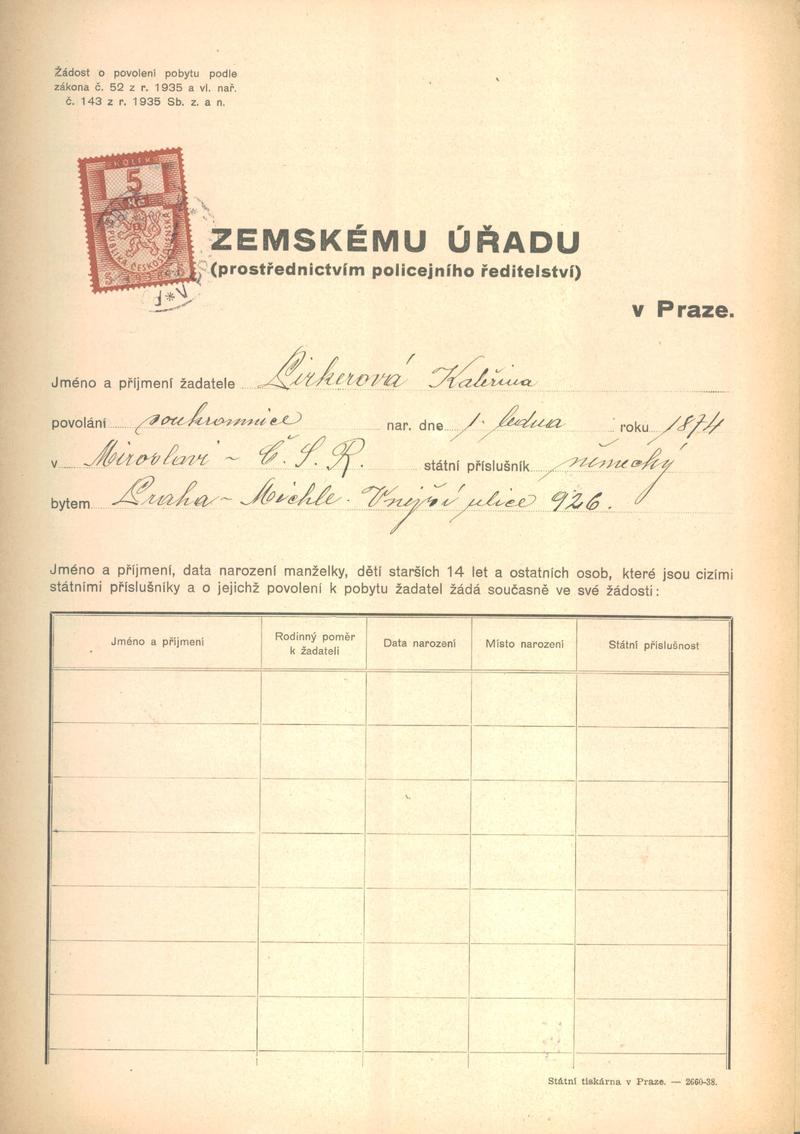 Žádost o povolení pobytu podle
zákona č. 52 z r. 1935 a vl. nař.
č. 143 z r. 1935 Sb. z. a n.
KOLEK
5
Kč
ZEMSKÉMU ÚŘADU
(prostřednictvím policejního ředitelství)
v Praze.
Jméno a příjmení žadatele Lirkerová Kateřina
povolání soukromnice nar. dne 1. ledna roku 1874
v Miroslavi - Č. S. R. státní příslušník německý
bytem Praha - Michle. Vnější ulice 926.
Jméno a příjmení, data narození manželky, dětí starších 14 let a ostatních osob, které jsou cizími
státními příslušníky a o jejichž povolení k pobytu žadatel žádá současně ve své žádosti:
Jméno a příjmení Rodinný poměr k žadateli Data narození Místo narození Státní příslušnost
Státní tiskárna v Praze. — 2660-38.